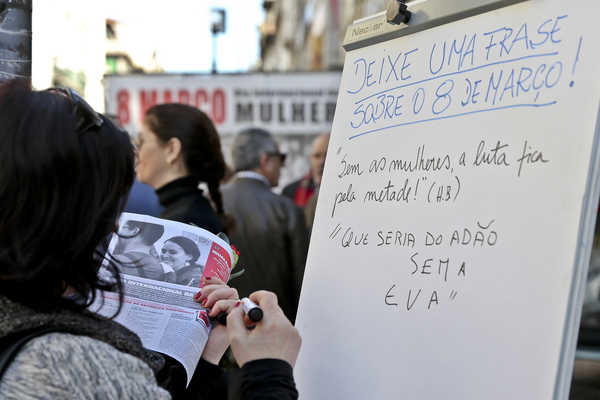 Nobo
DEIXE UMA FRASE
SOBRE O 8 DE MARÇO!
"Sem as mulheres, a luta fica
pela metade!" (H.B)
"QUE SERIA DO ADÃO
SEM A
EVA"
8 MARÇO
MULHER
INTERNACIONAL